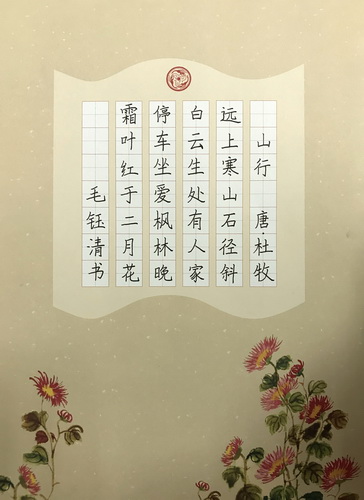 山行 唐·杜牧
远上寒山石径斜
白云生处有人家
停车坐爱枫林晚
霜叶红于二月花
毛钰清书